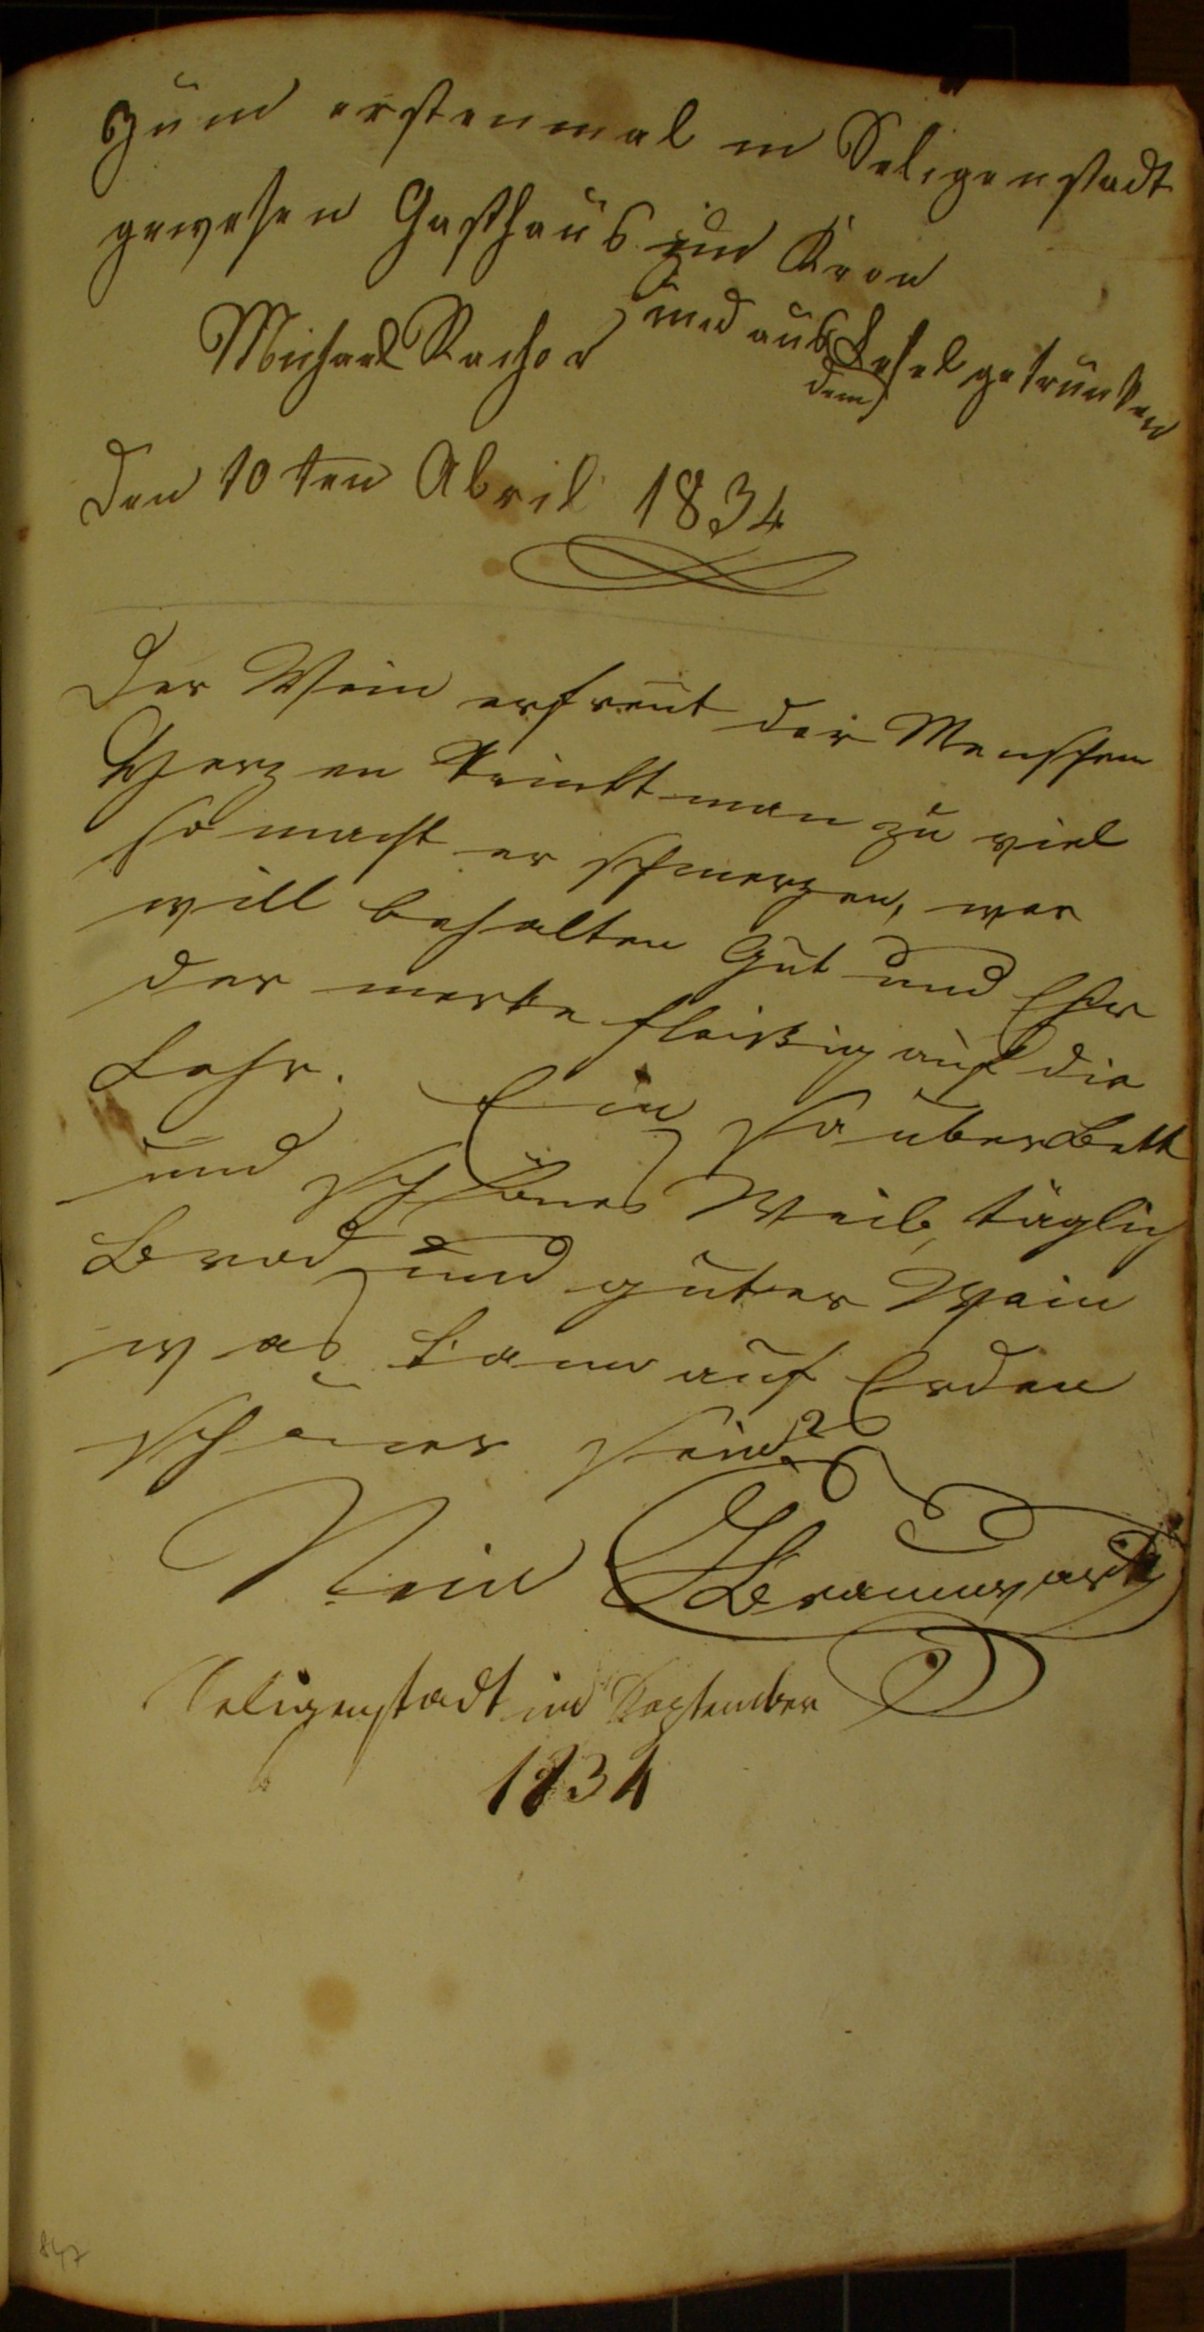 Zum erstenmal in Seligenstadt
gewesen Gasthaus zur Kron
und aus dem Lefel getrunken
Michael Racher
den 10ten Abril 1834
Der Wein erfreut der Menschen
Herzen Trinkt man zu viel
so macht er schmerzen, wer
will behalten Gut und Ehr
der merke fleißig auf die
Lehr. Ein sauber Bett
und schönes Weib, täglich
Brod und guter Wein
was kann auf Erden
schöner sein?
Nein
Seligenstadt im September
1834
847